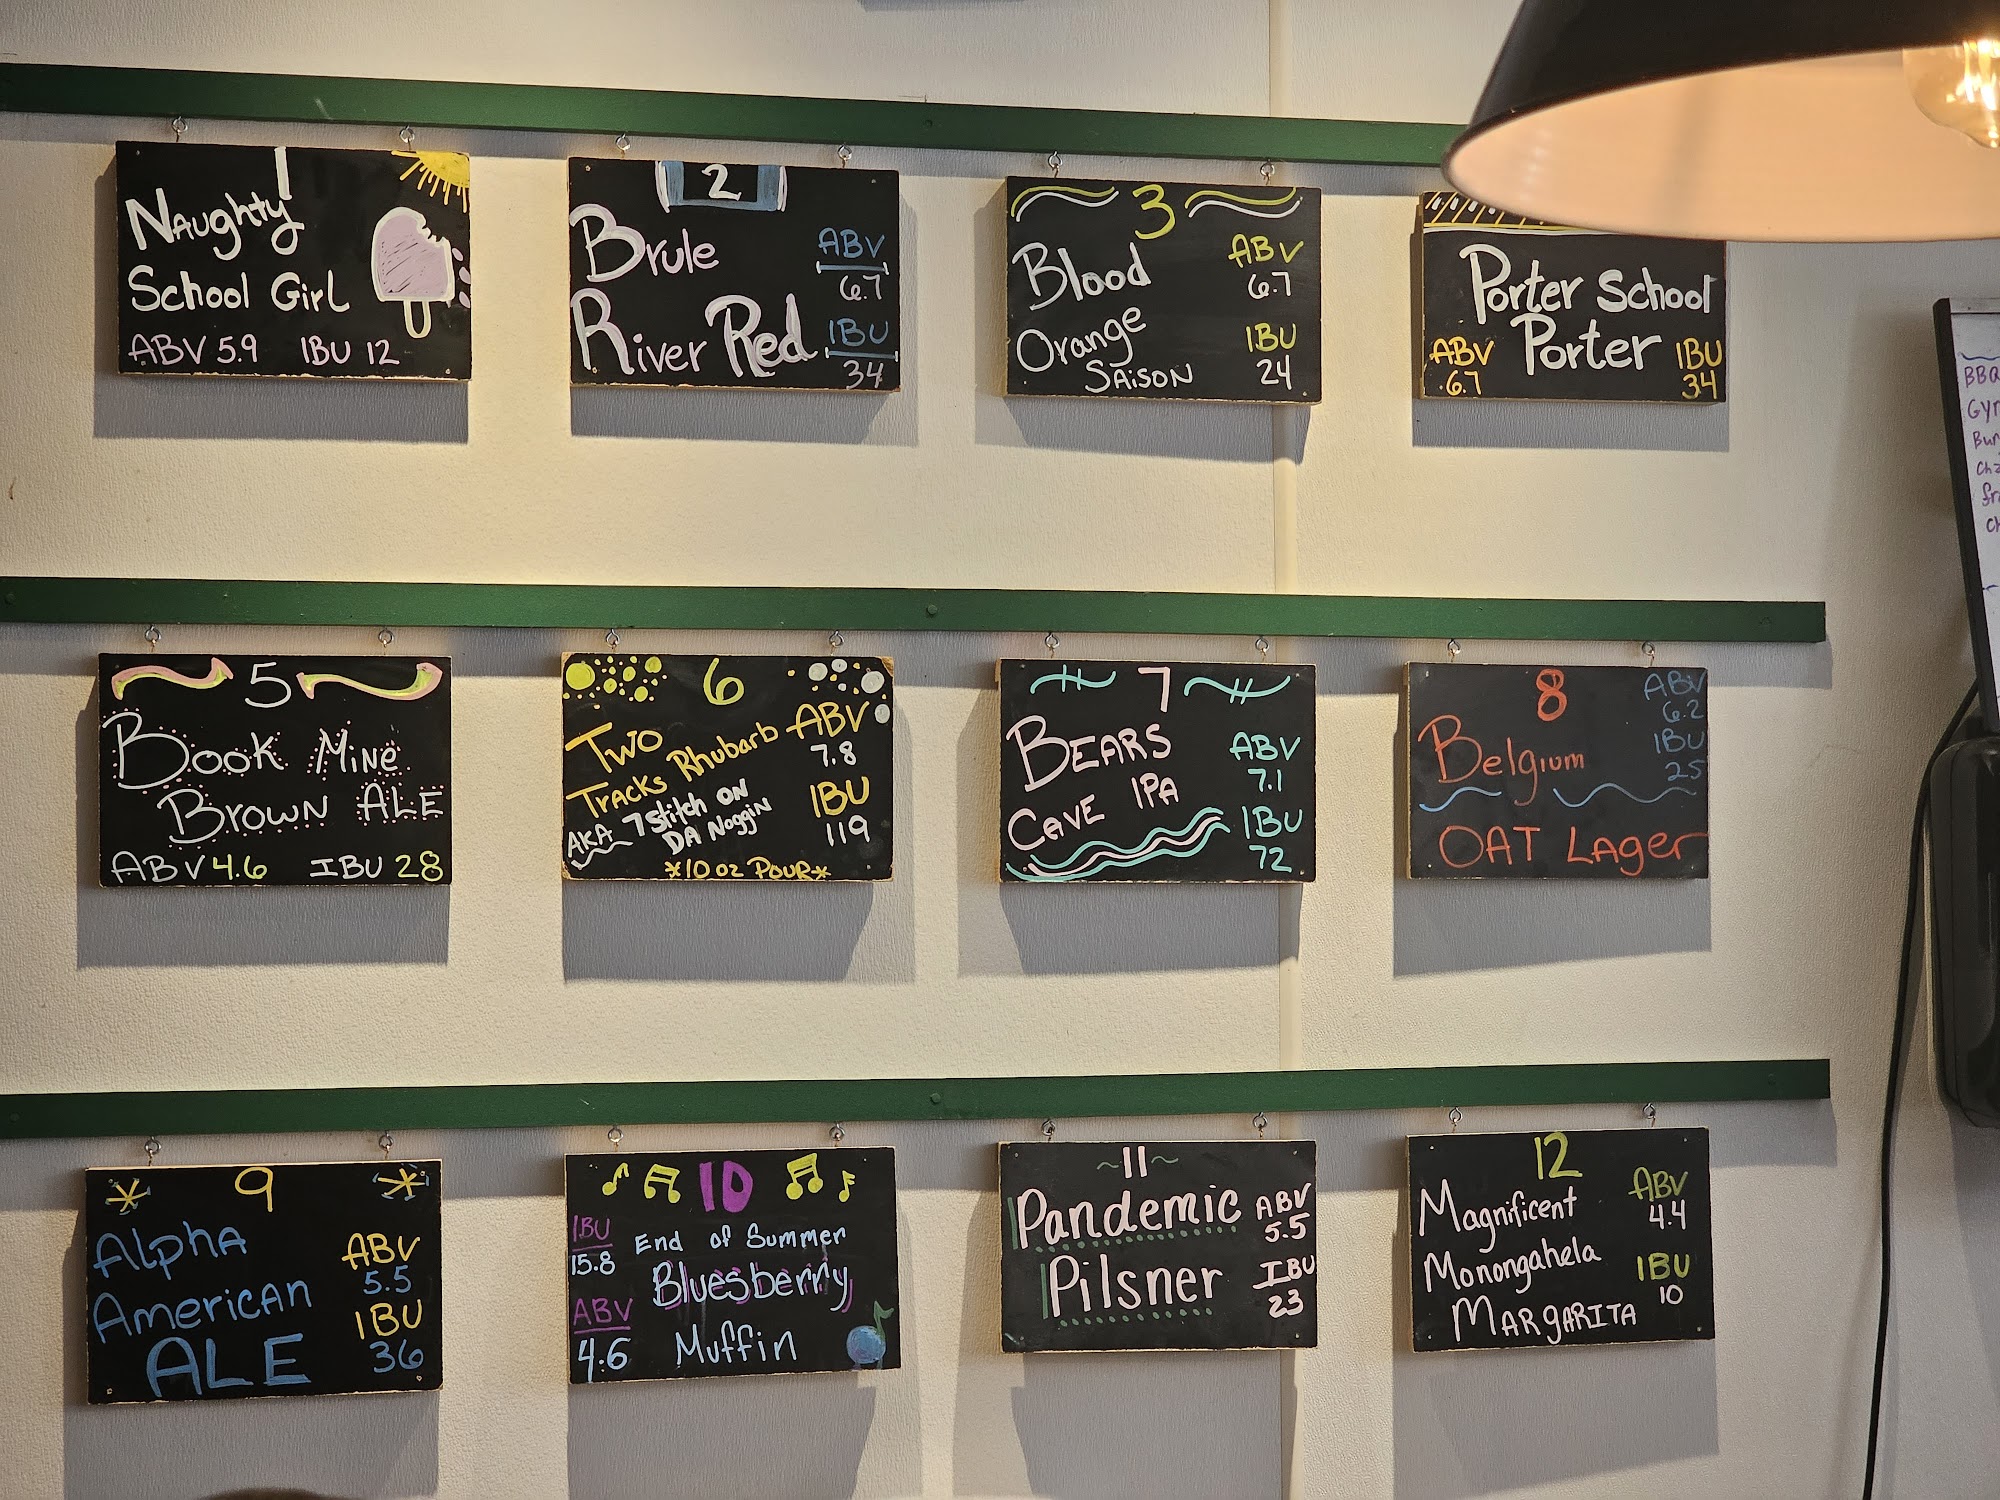 1
Naughty
School Girl
ABV 5.9 IBU 12
2
Brule
River Red
ABV
6.7
IBU
34
3
Blood
Orange
Saison
ABV
6.7
IBU
24
Porter School
Porter
ABV
6.7
IBU
34
5
Book Mine
Brown Ale
ABV 4.6 IBU 28
6
Two
Tracks Rhubarb
AKA 7 Stitch on
Da Noggin
ABV
7.8
IBU
119
*10 oz Pour*
7
Bears
Cave IPA
ABV
7.1
IBU
72
8
Belgium
Oat Lager
ABV
6.2
IBU
25
9
Alpha
American
Ale
ABV
5.5
IBU
36
10
End of Summer
Bluesberry
Muffin
IBU
15.8
ABV
4.6
~11~
Pandemic
Pilsner
ABV
5.5
IBU
23
12
Magnificent
Monongahela
Margarita
ABV
4.4
IBU
10
BBQ